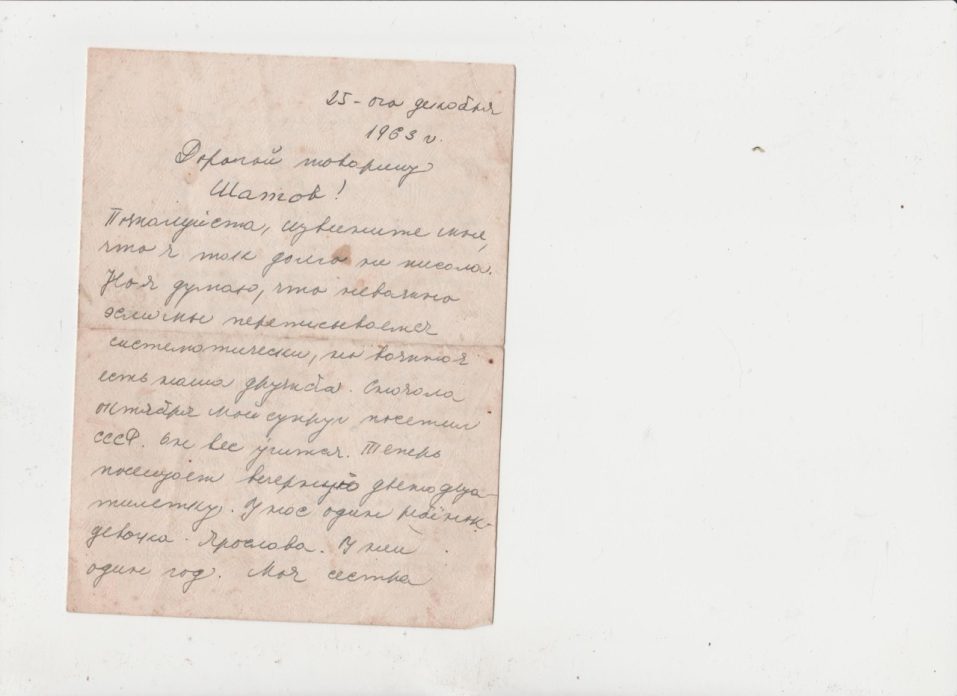 25-ого декабря
1963 г.
Дорогой товарищ
Шатов!
Пожалуйста, извините меня,
что я так долго не писала.
Но я думаю, что неважно
если мы переписываемся
систематически, но важная
есть наша дружба. Сначала
октября мой супруг посетил
СССР. Он вес учится. Теперь
посещает вечернюю двенадца-
тилетку. У нас один ребёнок-
девочка - Ярослава. У ней
один год. Моя сестра